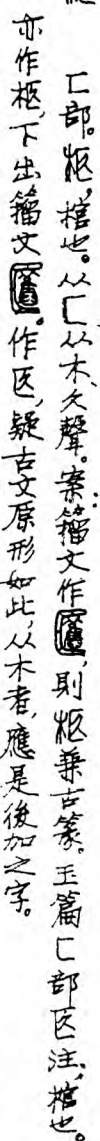 匚部。柩，棺也。从匚从木，久聲。案：籀文作匶，則柩兼古篆。玉篇匚部匛注，棺也。
亦作柩，下出籀文匶。作匛，疑古文原形如此，从木者，應是後加之字。